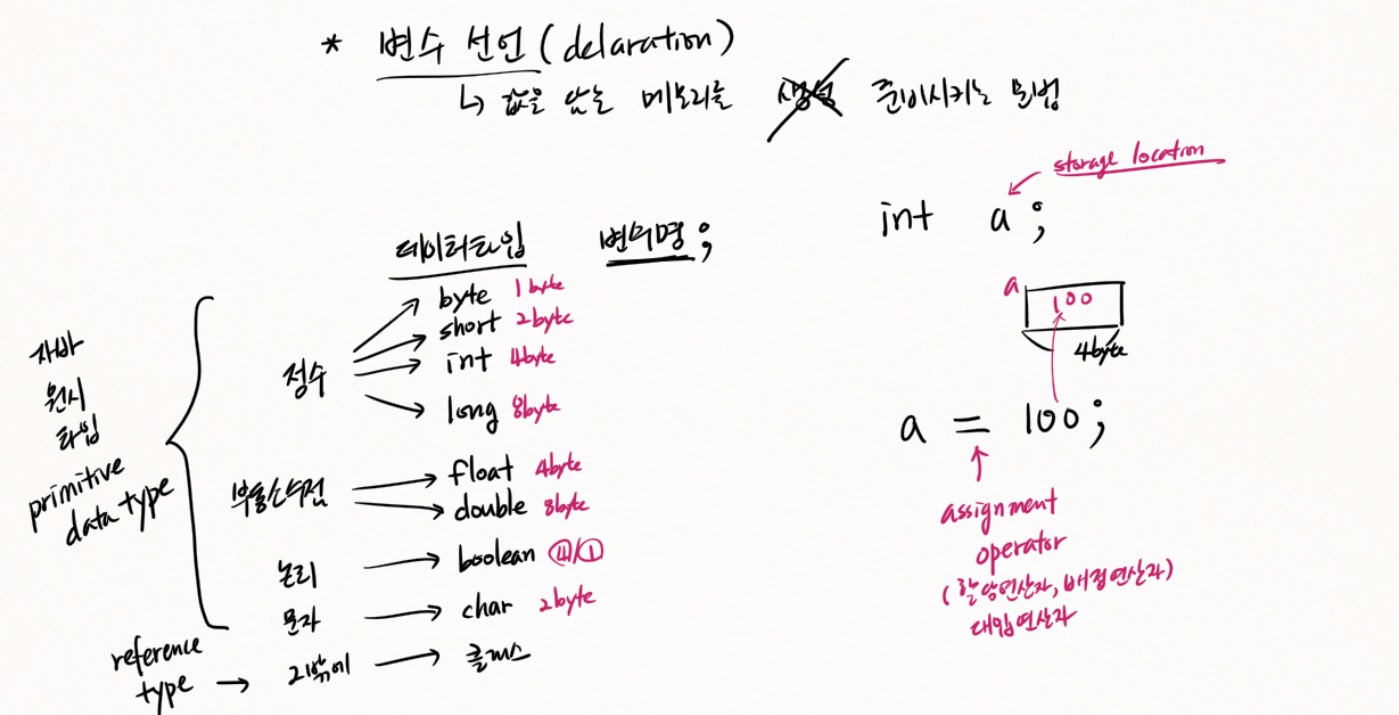 * 변수 선언 (delaration)
↳ 값을 담는 메모리를 준비시키는 문법
데이터타입 변수명;
자바
원시
타입
primitive
data type
정수
byte 1 byte
short 2byte
int 4byte
long 8byte
부동소수점
float 4byte
double 8byte
논리
boolean 4/1
문자
char 2byte
reference
type → 그밖에 → 클래스
storage location
int a;
a 100
4byte
a = 100;
assignment
operator
(할당연산자, 배정연산자)
대입연산자